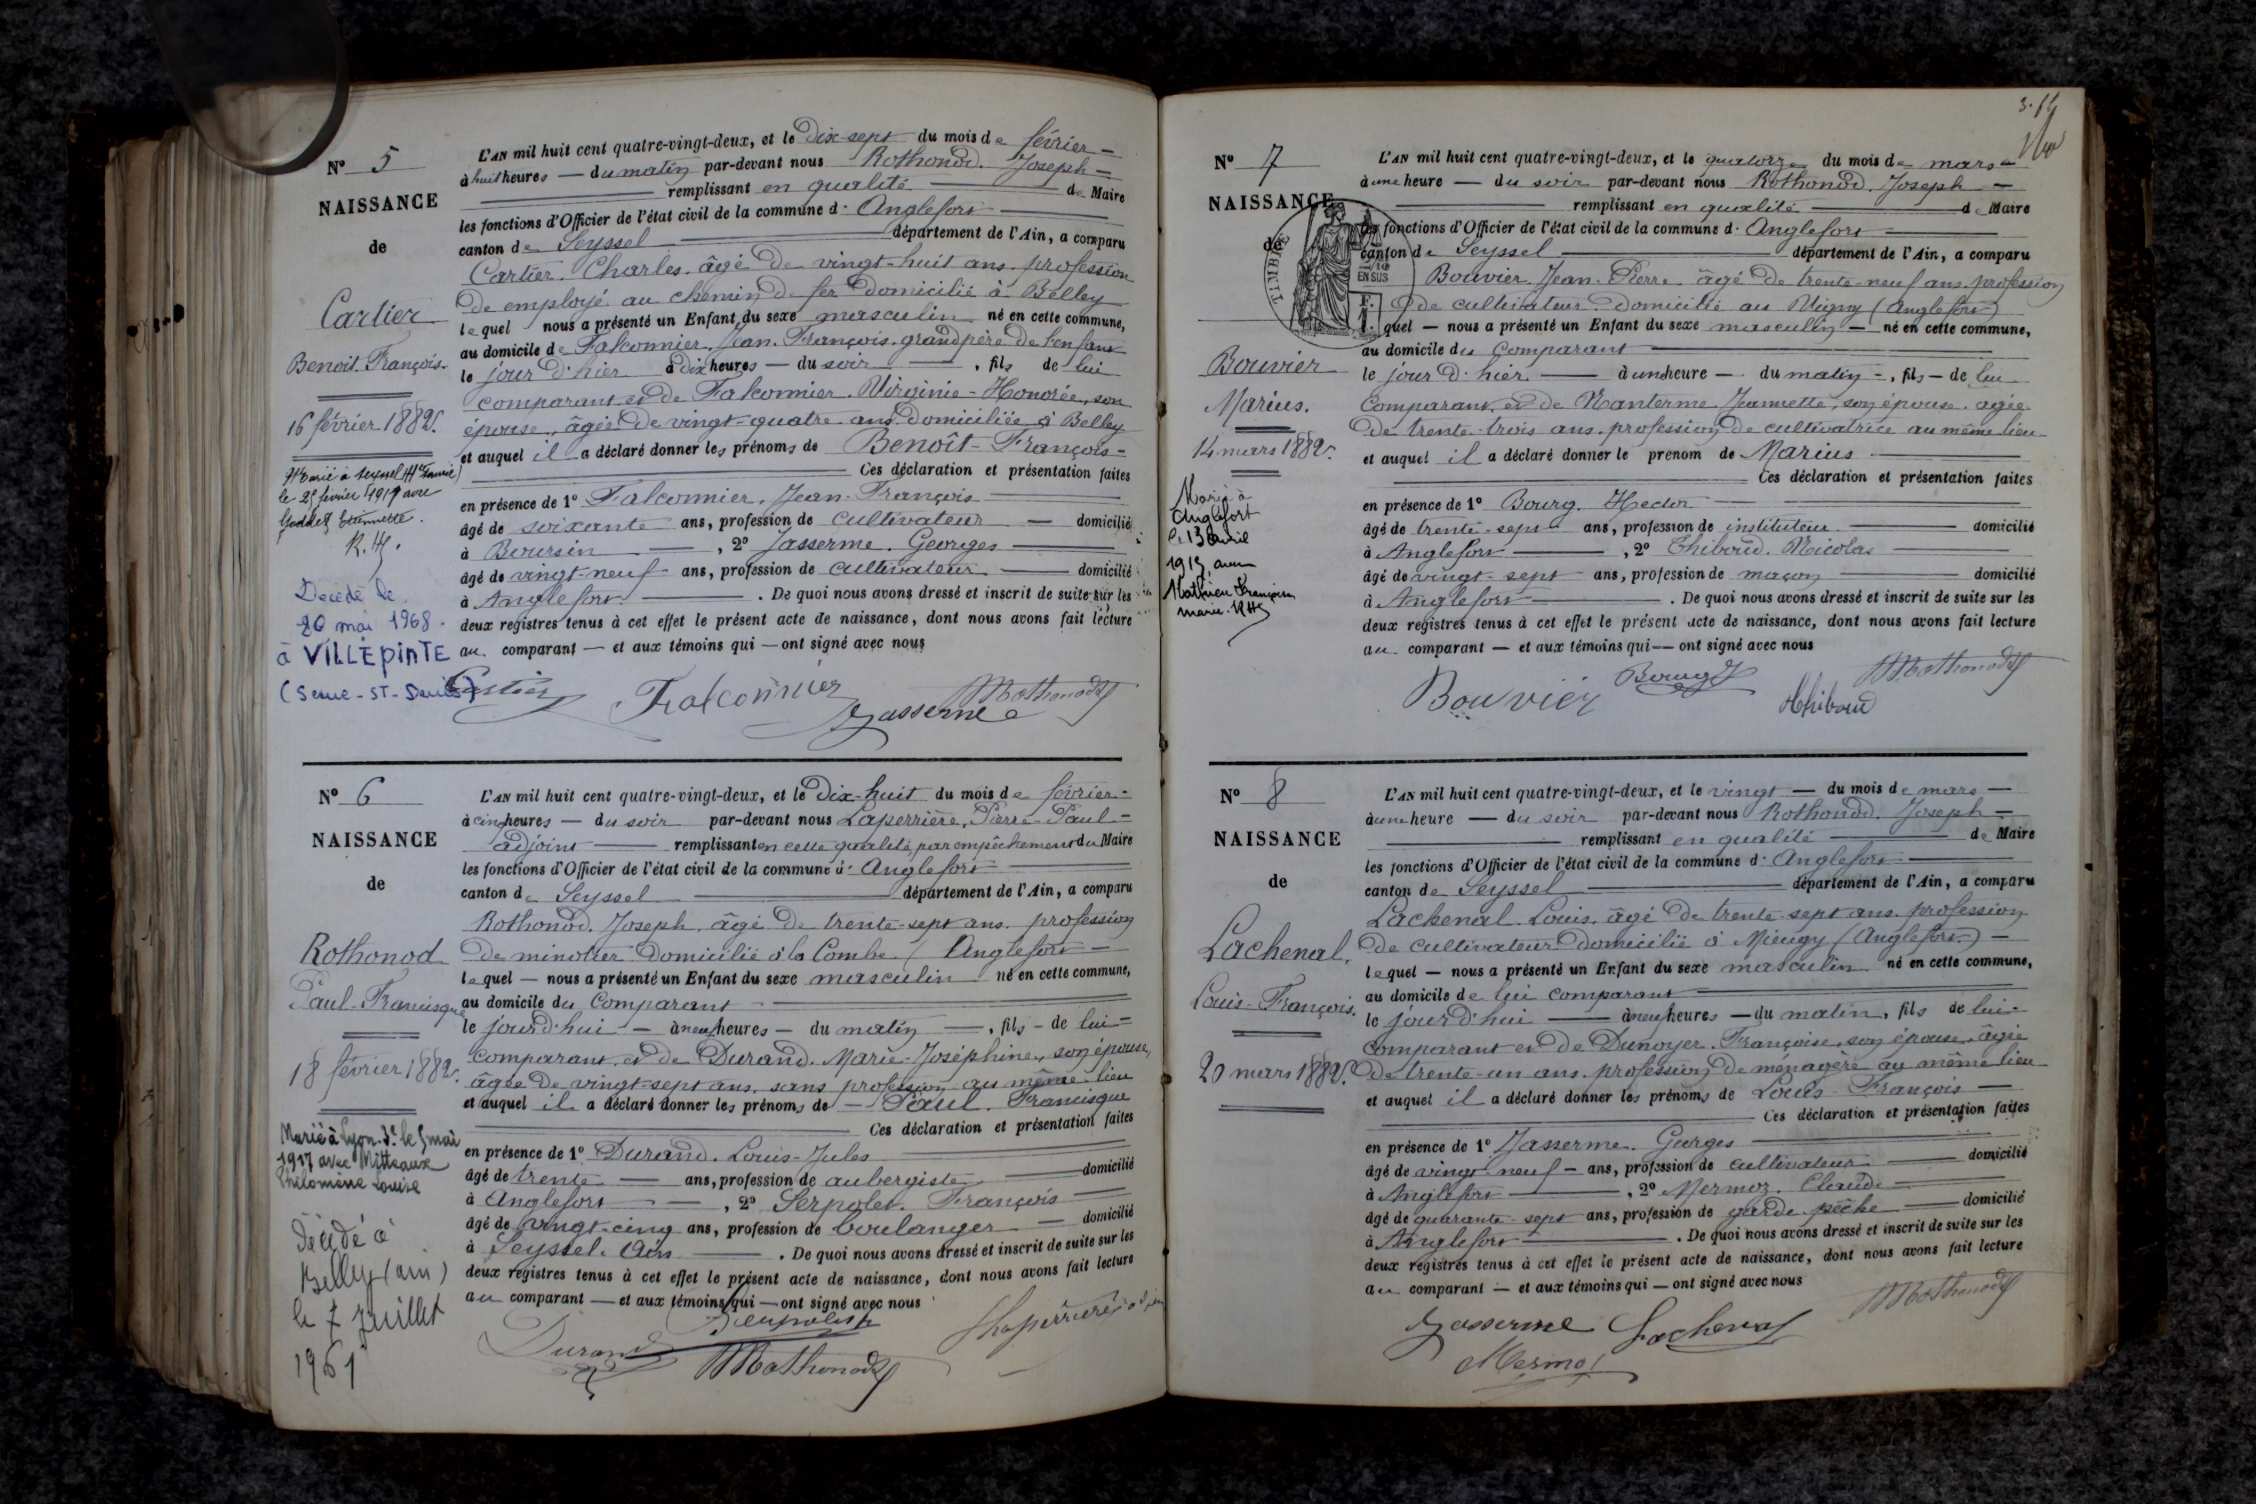 N° 5
NAISSANCE
de
Cartier
Benoit François.
16 février 1882.
Marié à Seyssel (Hte Savoie)
le 25 février 1919 avec
Goddet Etiennette.
R.H.
Décédé le
20 mai 1968.
à VILLEPINTE
(Seine-ST-Denis)
L'AN mil huit cent quatre-vingt-deux, et le dix-sept du mois de février
à huit heures — du matin par-devant nous Rothonod. Joseph
remplissant en qualité de Maire
les fonctions d'Officier de l'état civil de la commune d'Anglefort
canton de Seyssel département de l'Ain, a comparu
Cartier. Charles. âgé de vingt-huit ans. profession
de employé au chemin de fer domicilié à Belley
lequel nous a présenté un Enfant du sexe masculin né en cette commune,
au domicile de Falconnier. Jean. François. grand père de l'enfant
le jour d'hier à dix heures — du soir — , fils de lui
comparant et de Falconnier. Virginie-Honorée, son
épouse, âgée de vingt-quatre ans domiciliée à Belley
et auquel il a déclaré donner les prénoms de Benoît-François
Ces déclaration et présentation faites
en présence de 1° Falconnier. Jean-François
âgé de soixante ans, profession de cultivateur — domicilié
à Boursin — , 2° Jasserme. Georges
âgé de vingt-neuf ans, profession de cultivateur — domicilié
à Anglefort. — . De quoi nous avons dressé et inscrit de suite sur les
deux registres tenus à cet effet le présent acte de naissance, dont nous avons fait lecture
au comparant — et aux témoins qui — ont signé avec nous
Cartier Falconnier Jasserme Rothonod
N° 6
NAISSANCE
de
Rothonod
Paul-Francisque
18 février 1882.
Marié à Lyon 3e le 5 mai
1917 avec Mitteaux
Philomène Louise
Décédé à
Belley (ain)
le 7 Juillet
1961
L'AN mil huit cent quatre-vingt-deux, et le dix-huit du mois de février
à cinq heures — du soir par-devant nous Laperrière. Pierre-Paul
adjoint — remplissant en cette qualité par empêchement du Maire
les fonctions d'Officier de l'état civil de la commune d'Anglefort
canton de Seyssel département de l'Ain, a comparu
Rothonod. Joseph. âgé de trente-sept ans. profession
de minotier domicilié à la Combe (Anglefort
lequel — nous a présenté un Enfant du sexe masculin né en cette commune,
au domicile du comparant
le jourd'hui — à neuf heures — du matin — , fils — de lui
comparant et de Durand. Marie-Joséphine, son épouse,
âgée de vingt-sept ans. sans profession au même lieu
et auquel il a déclaré donner les prénoms de — Paul. Francisque
Ces déclaration et présentation faites
en présence de 1° Durand. Louis-Jules
âgé de trente — ans, profession de aubergiste — domicilié
à Anglefort — , 2° Serpolet. François
âgé de vingt-cinq ans, profession de boulanger — domicilié
à Seyssel. Ain — . De quoi nous avons dressé et inscrit de suite sur les
deux registres tenus à cet effet le présent acte de naissance, dont nous avons fait lecture
au comparant — et aux témoins qui — ont signé avec nous
Durand Serpolet Rothonod Laperrière adjoint
N° 7
NAISSANCE
de
TIMBRE
EN SUS
Bouvier
Marius.
14 mars 1882.
Marié à
Anglefort
le 13 avril
1913, avec
Mathieu Françoise
marie. RH
L'AN mil huit cent quatre-vingt-deux, et le quatorze du mois de mars
à une heure — du soir par-devant nous Rothonod. Joseph —
remplissant en qualité de Maire
les fonctions d'Officier de l'état civil de la commune d'Anglefort
canton de Seyssel département de l'Ain, a comparu
Bouvier. Jean-Pierre. âgé de trente-neuf ans. profession
de cultivateur domicilié au Vigny (Anglefort)
lequel — nous a présenté un Enfant du sexe masculin — né en cette commune,
au domicile du comparant
le jour d'hier — à une heure — du matin — , fils — de lui
comparant et de Nanterme Jeannette, son épouse. agée
de trente-trois ans. profession de cultivatrice au même lieu
et auquel il a déclaré donner le prénom de Marius
Ces déclaration et présentation faites
en présence de 1° Bourg. Hector
âgé de trente-sept ans, profession de instituteur — domicilié
à Anglefort — , 2° Thiboud. Nicolas
âgé de vingt-sept ans, profession de maçon — domicilié
à Anglefort — . De quoi nous avons dressé et inscrit de suite sur les
deux registres tenus à cet effet le présent acte de naissance, dont nous avons fait lecture
au comparant — et aux témoins qui — ont signé avec nous
Bouvier Bourg Thiboud Rothonod
N° 8
NAISSANCE
de
Lachenal.
Louis-François.
20 mars 1882.
L'AN mil huit cent quatre-vingt-deux, et le vingt — du mois de mars —
à une heure — du soir par-devant nous Rothonod. Joseph
remplissant en qualité de Maire
les fonctions d'Officier de l'état civil de la commune d'Anglefort
canton de Seyssel département de l'Ain, a comparu
Lachenal. Louis. âgé de trente-sept ans. profession
de cultivateur domicilié à Mieugy (Anglefort) —
lequel — nous a présenté un Enfant du sexe masculin né en cette commune,
au domicile de lui comparant
le jourd'hui — à neuf heures — du matin, fils de lui
comparant et de Dunoyer. Françoise, son épouse. âgée
de trente-un ans. profession de ménagère au même lieu
et auquel il a déclaré donner les prénoms de Louis-François —
Ces déclaration et présentation faites
en présence de 1° Jasserme. Georges
âgé de vingt-neuf — ans, profession de cultivateur — domicilié
à Anglefort — , 2° Mermoz. Claude
âgé de quarante-sept ans, profession de garde-pêche — domicilié
à Anglefort — . De quoi nous avons dressé et inscrit de suite sur les
deux registres tenus à cet effet le présent acte de naissance, dont nous avons fait lecture
au comparant — et aux témoins qui — ont signé avec nous
Jasserme Lachenal Mermoz Rothonod